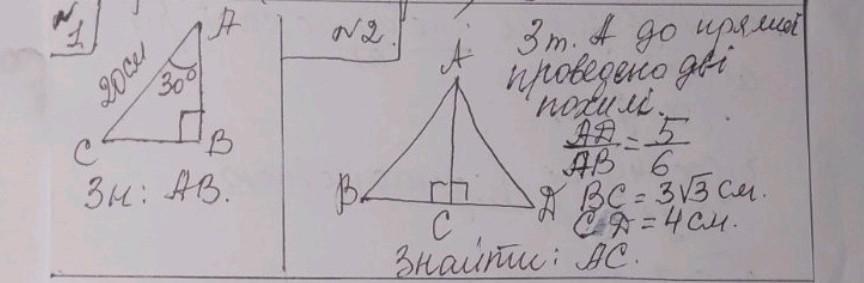 №
1
A
20см
30°
C
B
Зн: AB.
№2.
A
B
C
D
З т. A до прямої
проведено дві
похилі.
AD/AB = 5/6
BC = 3√3 см.
CD = 4 см.
Знайти: AC.